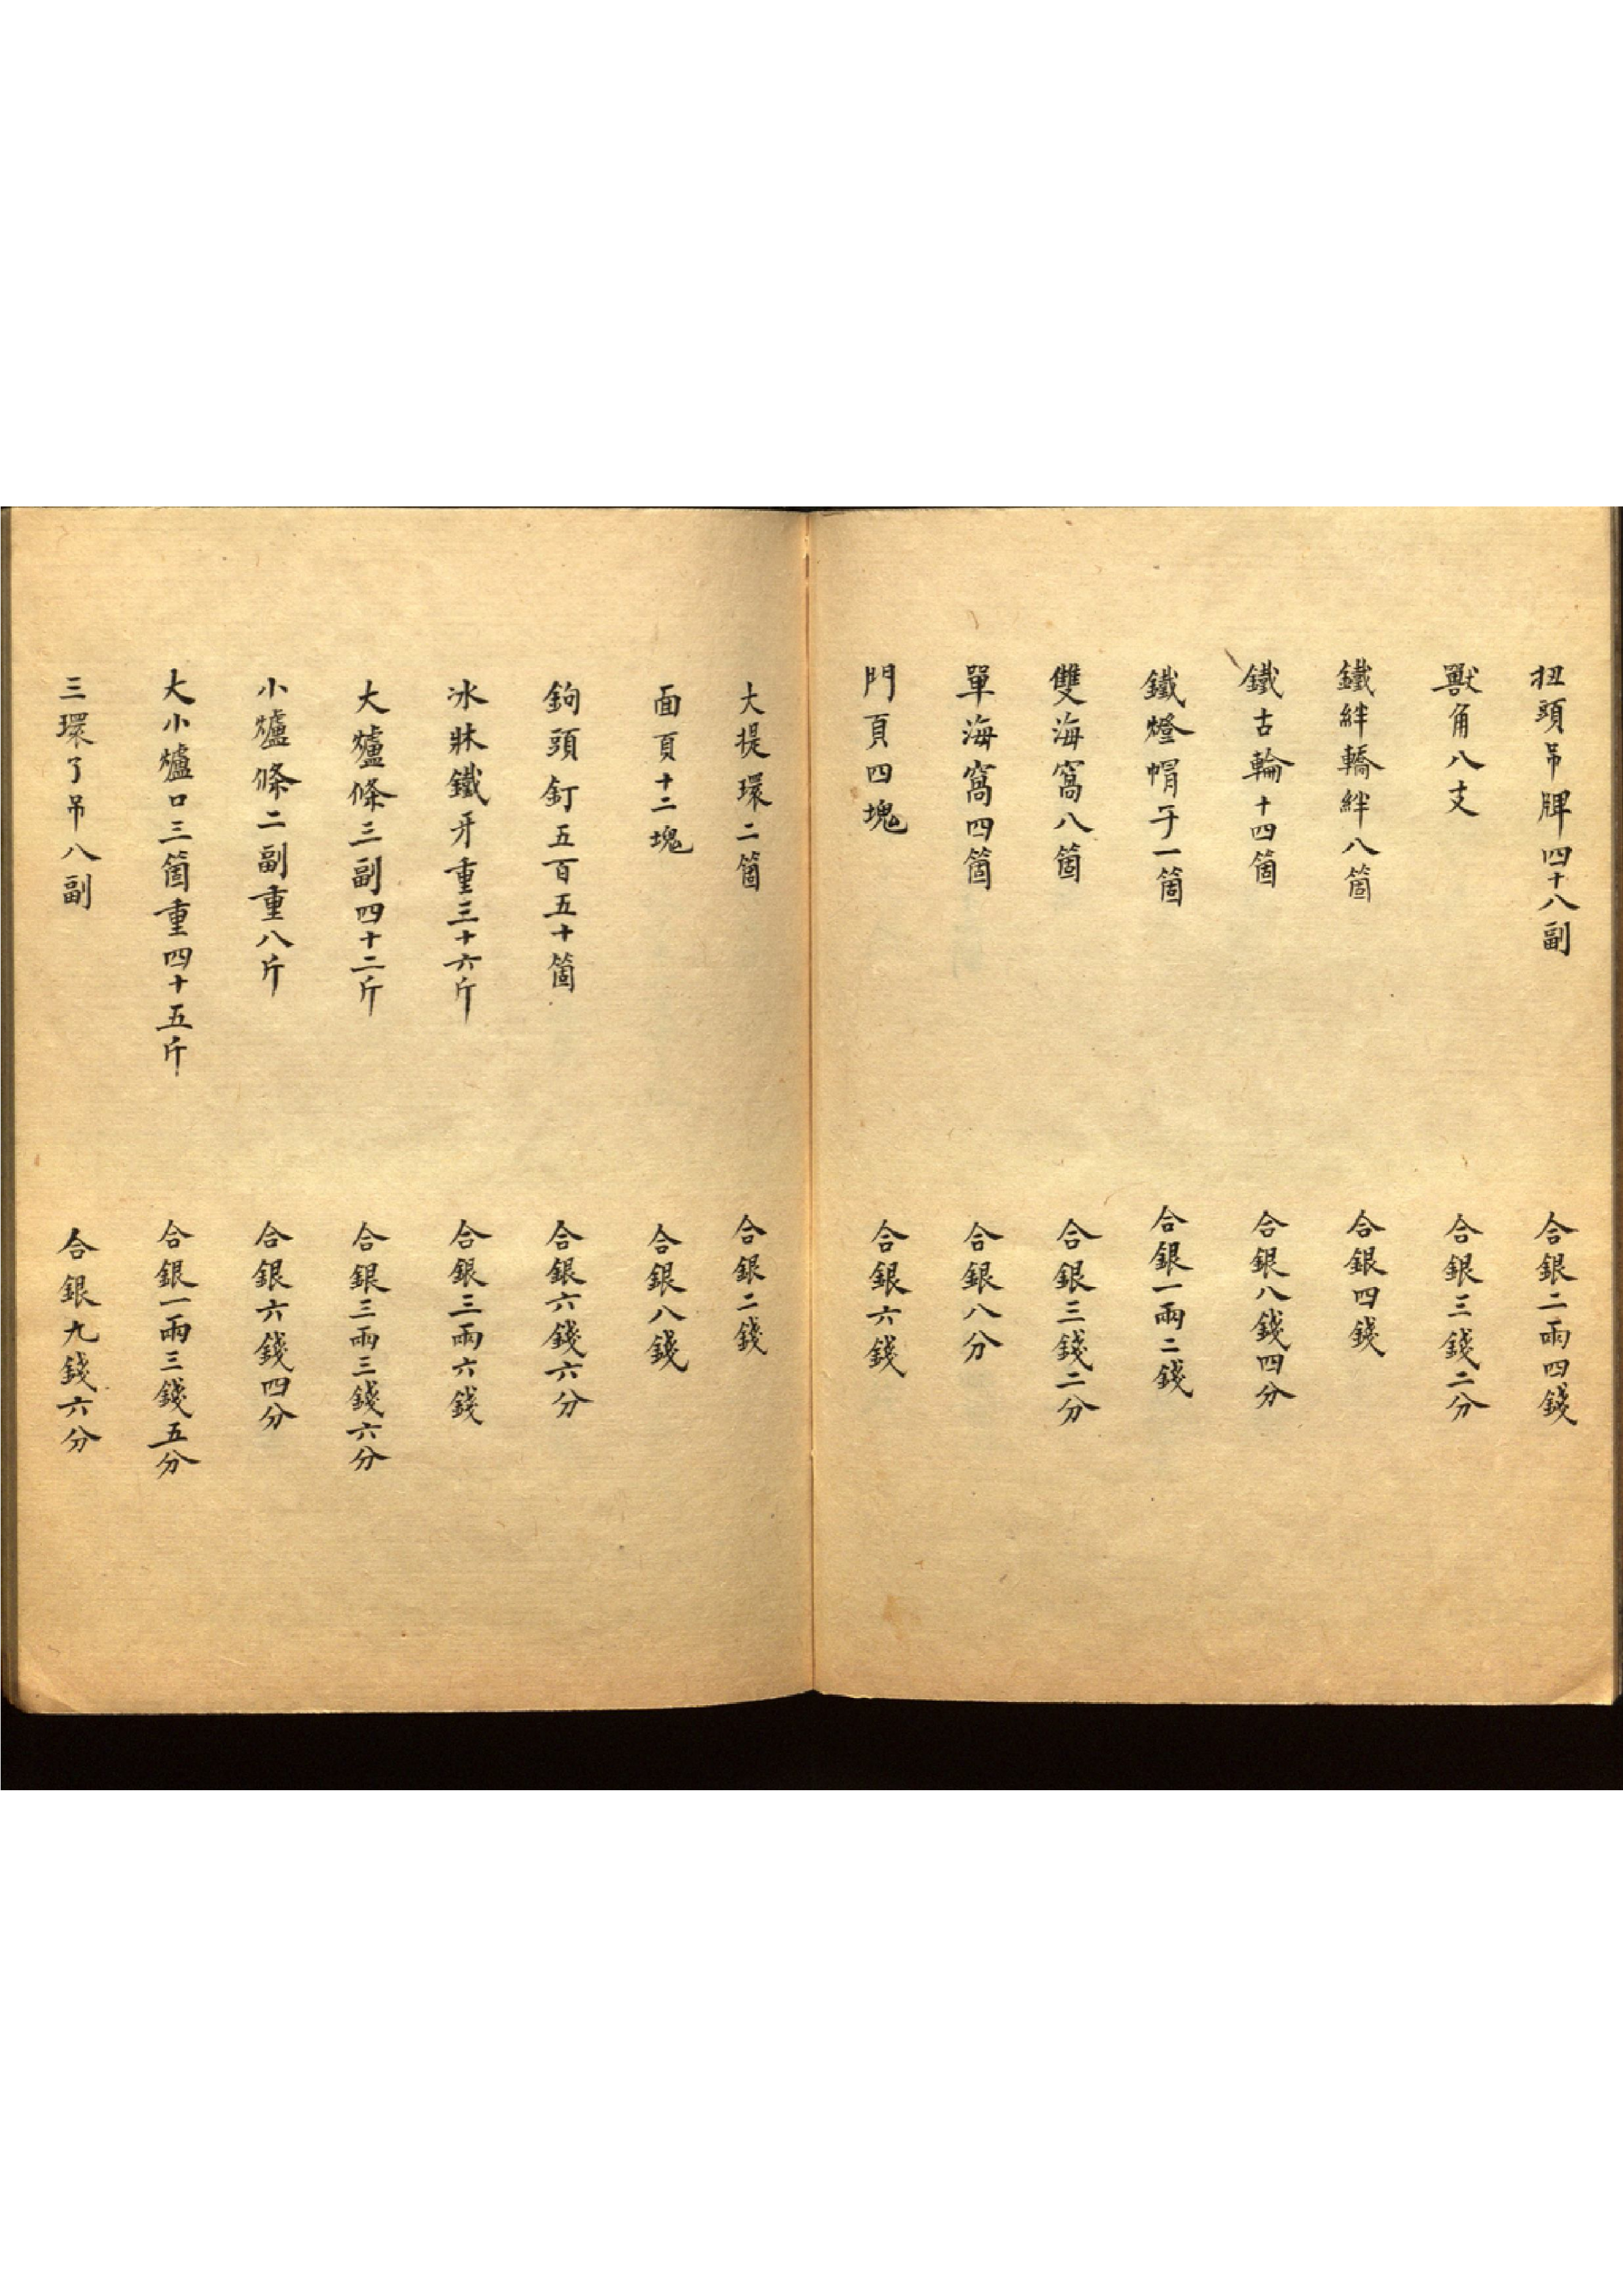 扭頭吊牌四十八副　合銀二兩四錢
獸角八支　合銀三錢二分
鐵絆轎絆八箇　合銀四錢
鐵古輪十四箇　合銀八錢四分
鐵燈帽子一箇　合銀一兩二錢
雙海窩八箇　合銀三錢二分
單海窩四箇　合銀八分
門頁四塊　合銀六錢
大提環二箇　合銀二錢
面頁十二塊　合銀八錢
鉤頭釘五百五十箇　合銀六錢六分
冰牀鐵牙重三十六斤　合銀三兩六錢
大爐條三副四十二斤　合銀三兩三錢六分
小爐條二副重八斤　合銀六錢四分
大小爐口三箇重四十五斤　合銀一兩三錢五分
三環了吊八副　合銀九錢六分